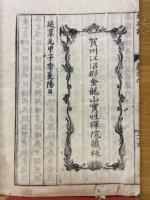 賀州江沼郡金龍山實性禪院藏板
延享元甲子季夏陽日